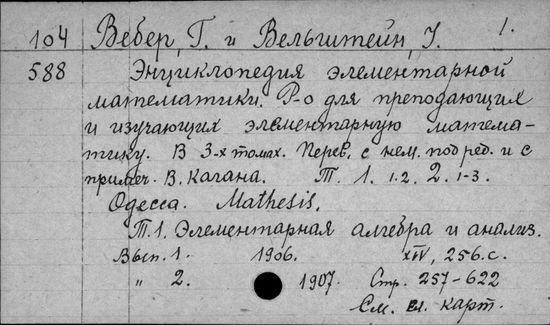 1.
104 Вебер, Г. и Вельштейн, У.
588 Энциклопедия элементарной
математики. Р-о для преподающих
и изучающих элементарную матема-
тику. В 3-х томах. Перев. с нем. под ред. и с
примеч. В. Кагана. Т. 1. 1-2. 2. 1-3.
Одесса. Mathesis.
Т.1. Элементарная алгебра и анализ.
Вып. 1. 1906. XIV, 256 с.
" 2. 1907. Стр. 257-622
См. сл. карт.